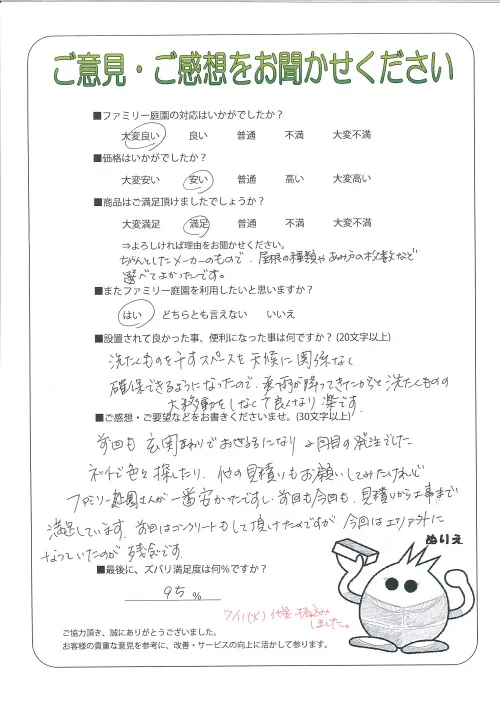 ご意見・ご感想をお聞かせください
■ファミリー庭園の対応はいかがでしたか？
大変良い 良い 普通 不満 大変不満
■価格はいかがでしたか？
大変安い 安い 普通 高い 大変高い
■商品はご満足頂けましたでしょうか？
大変満足 満足 普通 不満 大変不満
⇒よろしければ理由をお聞かせください。
ちゃんとしたメーカーのもので、屋根の種類やあみ戸の枚数など
選べてよかったです。
■またファミリー庭園を利用したいと思いますか？
はい どちらとも言えない いいえ
■設置されて良かった事、便利になった事は何ですか？(20文字以上)
洗たくものを干すスペースを天候に関係なく
確保できるようになったので、雨が降ってきたからと洗たくものの
大移動をしなくて良くなり楽です。
■ご感想・ご要望などをお書きくださいませ。(30文字以上)
前回も玄関まわりでおせわになり2回目の発注でした
ネットで色々探したり、他の見積りもお願いしてみたけれど
ファミリー庭園さんが一番安かったですし、前回も今回も、見積りから工事まで
満足しています。前回はコンクリートもして頂けたのですが今回はエリア外に
なっていたのが残念です。
ぬりえ
■最後に、ズバリ満足度は何％ですか？
95 %
7/11(火)代金振込み
しました。
ご協力頂き、誠にありがとうございました。
お客様の貴重な意見を参考に、改善・サービスの向上に活かして参ります。